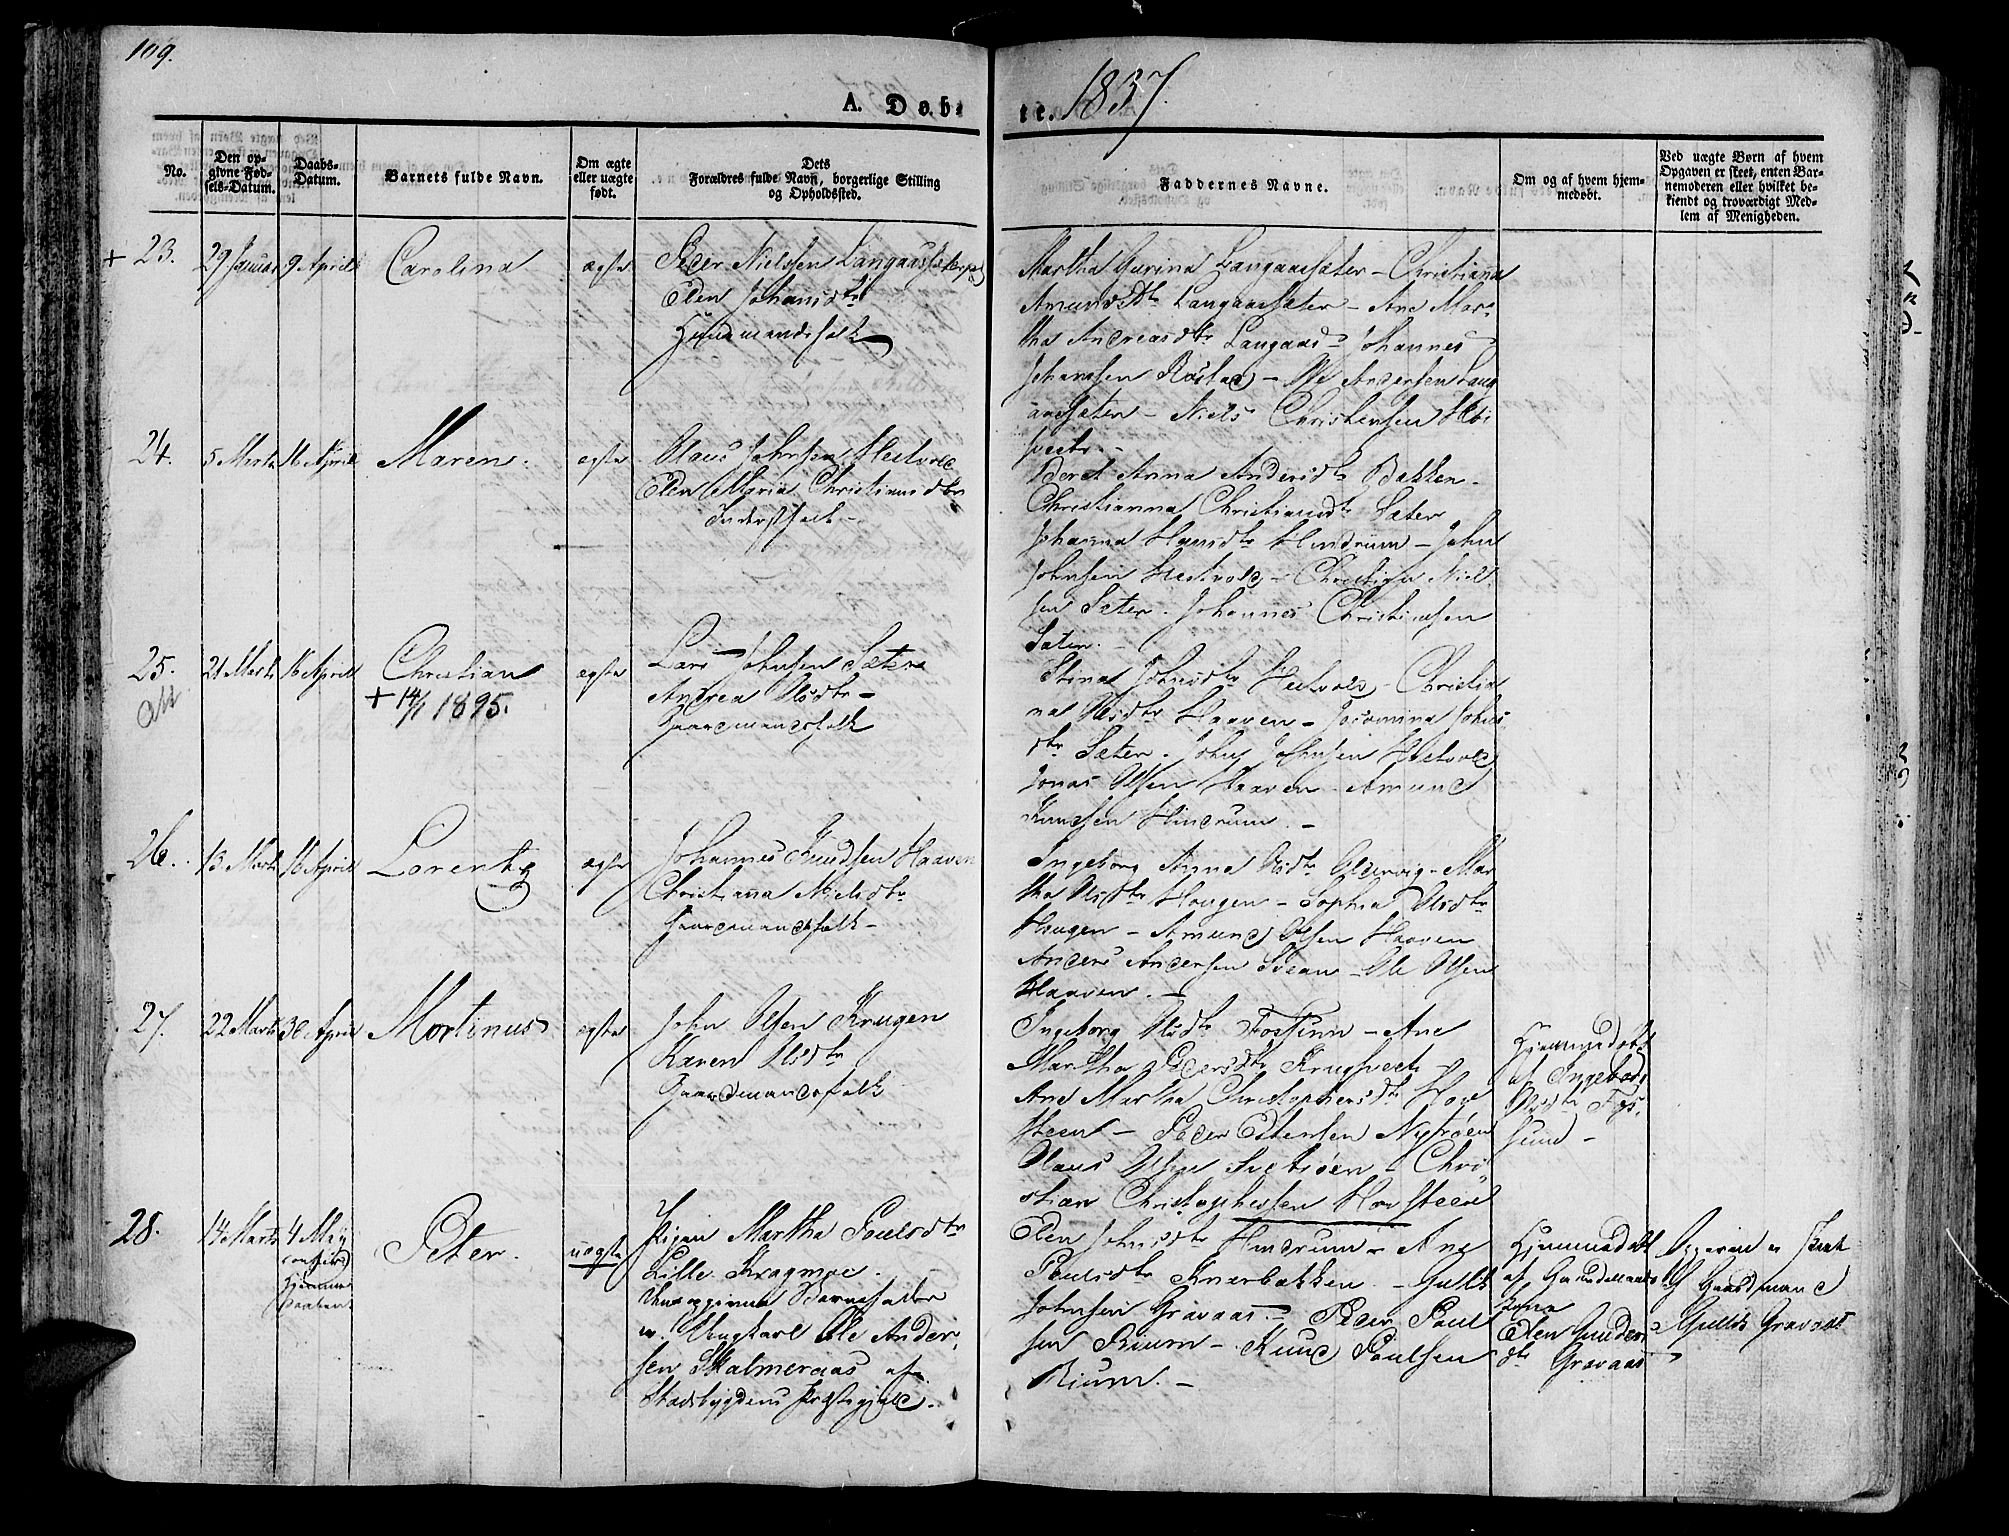 109.
A. Døb-
te. 1837.
No.
Den op-
givne Fød-
sels-Datum.
Daabs-
Datum.
Barnets fulde Navn.
Om ægte
eller uægte
født.
Dets
Forældres fulde Navn, borgerlige Stilling
og Opholdssted.
Faddernes Navne.
Om og af hvem hjem-
medøbt.
Ved uægte Børn af hvem
Opgaven er skeet, enten Bar-
nemoderen eller hvilket be-
kiendt og troværdigt Med-
lem af Menigheden.
+ 23. 29 Januar 9 April Carolina ægte
Peder Nielssen
Elen Johansdtr
Huusmandsfolk
Martha Gurina Langaassæter - Christianna
Amundsdtr Langaassæter - Ane Mar-
tha Andreasdtr Langaas - Johannes
Johansen Røstad - Ole Andersen Lang
aassæter - Niels Christensen
24. 5 Marts 16 April Maren. ægte
Olaus Johnsen Hestvold
Elen Maria Christiansdtr
Inderstfolk -
Beret Anna Andersdtr Bakken -
Christianna Christiansdtr Sæter
Johanna Hansdtr Hindrum - John
Johnsen Hestvold - Christian Niel
sen Sæter. Johannes Christiansen
Sæter. -
25. 21 Marts 16 April Christian ægte
+ 14/1 1895.
Lars Johnsen Sæter
Andrea Olsdtr -
Gaardmandsfolk
Stina Johnsdtr Hestvold - Christia
na Olsdtr Haaven - Johns
dtr Sæter. John Johnsen Hestvold
Jonas Olsen Haaven - Amund
Knudsen Hindrum. -
26. 13 Marts 16 April Lorentz ægte
Johannes Knudsen Haaven
Christianna Nielsdtr
Gaardmandsfolk -
Ingeborg Anna Olsdtr Oldervig - Mar
tha Olsdtr Hougen - Sophia Olsdtr
Hougen - Amund Olsen Haaven
Anders Andersen Svean - Ole Olsen
Haaven. -
27. 22 Marts 30 April Mortinus ægte
John Olsen Krogen
Karen Olsdtr
Gaardmandsfolk
Ingeborg Olsdtr Fossum - Ane
Martha Pedersdtr -
Ane Martha Christophersdtr Hov
steen - Peder Estensen Nyrøen
Olaus Olsen - Chri
stian Christophersen Hovsteen
Hjemmedøbt
af Ingeborg
Olsdtr Fos
sum -
28. 14 Marts 4 May Peter. uægte
Hjemme
daaben
Pigen Martha Poulsdtr
Lille Kragmoe.
Udlagt Barnefader
er Ungkarl Ole Ander-
sen Skalmeraas af
Stadsbygdens Præstegjeld.
Elen Johnsdtr Hindrum - Ane
Poulsdtr Knarbakken. - Gullik
Johnsen Gravaas. - Peder Poul
sen Rium - Knud Poulsen
Rium. -
Hjemmedøbt
af Gaardmands
kone
Elen Gunders
dtr Gravaas
Opgaven er skeet
af Gaardmand
Gullik Gravaas